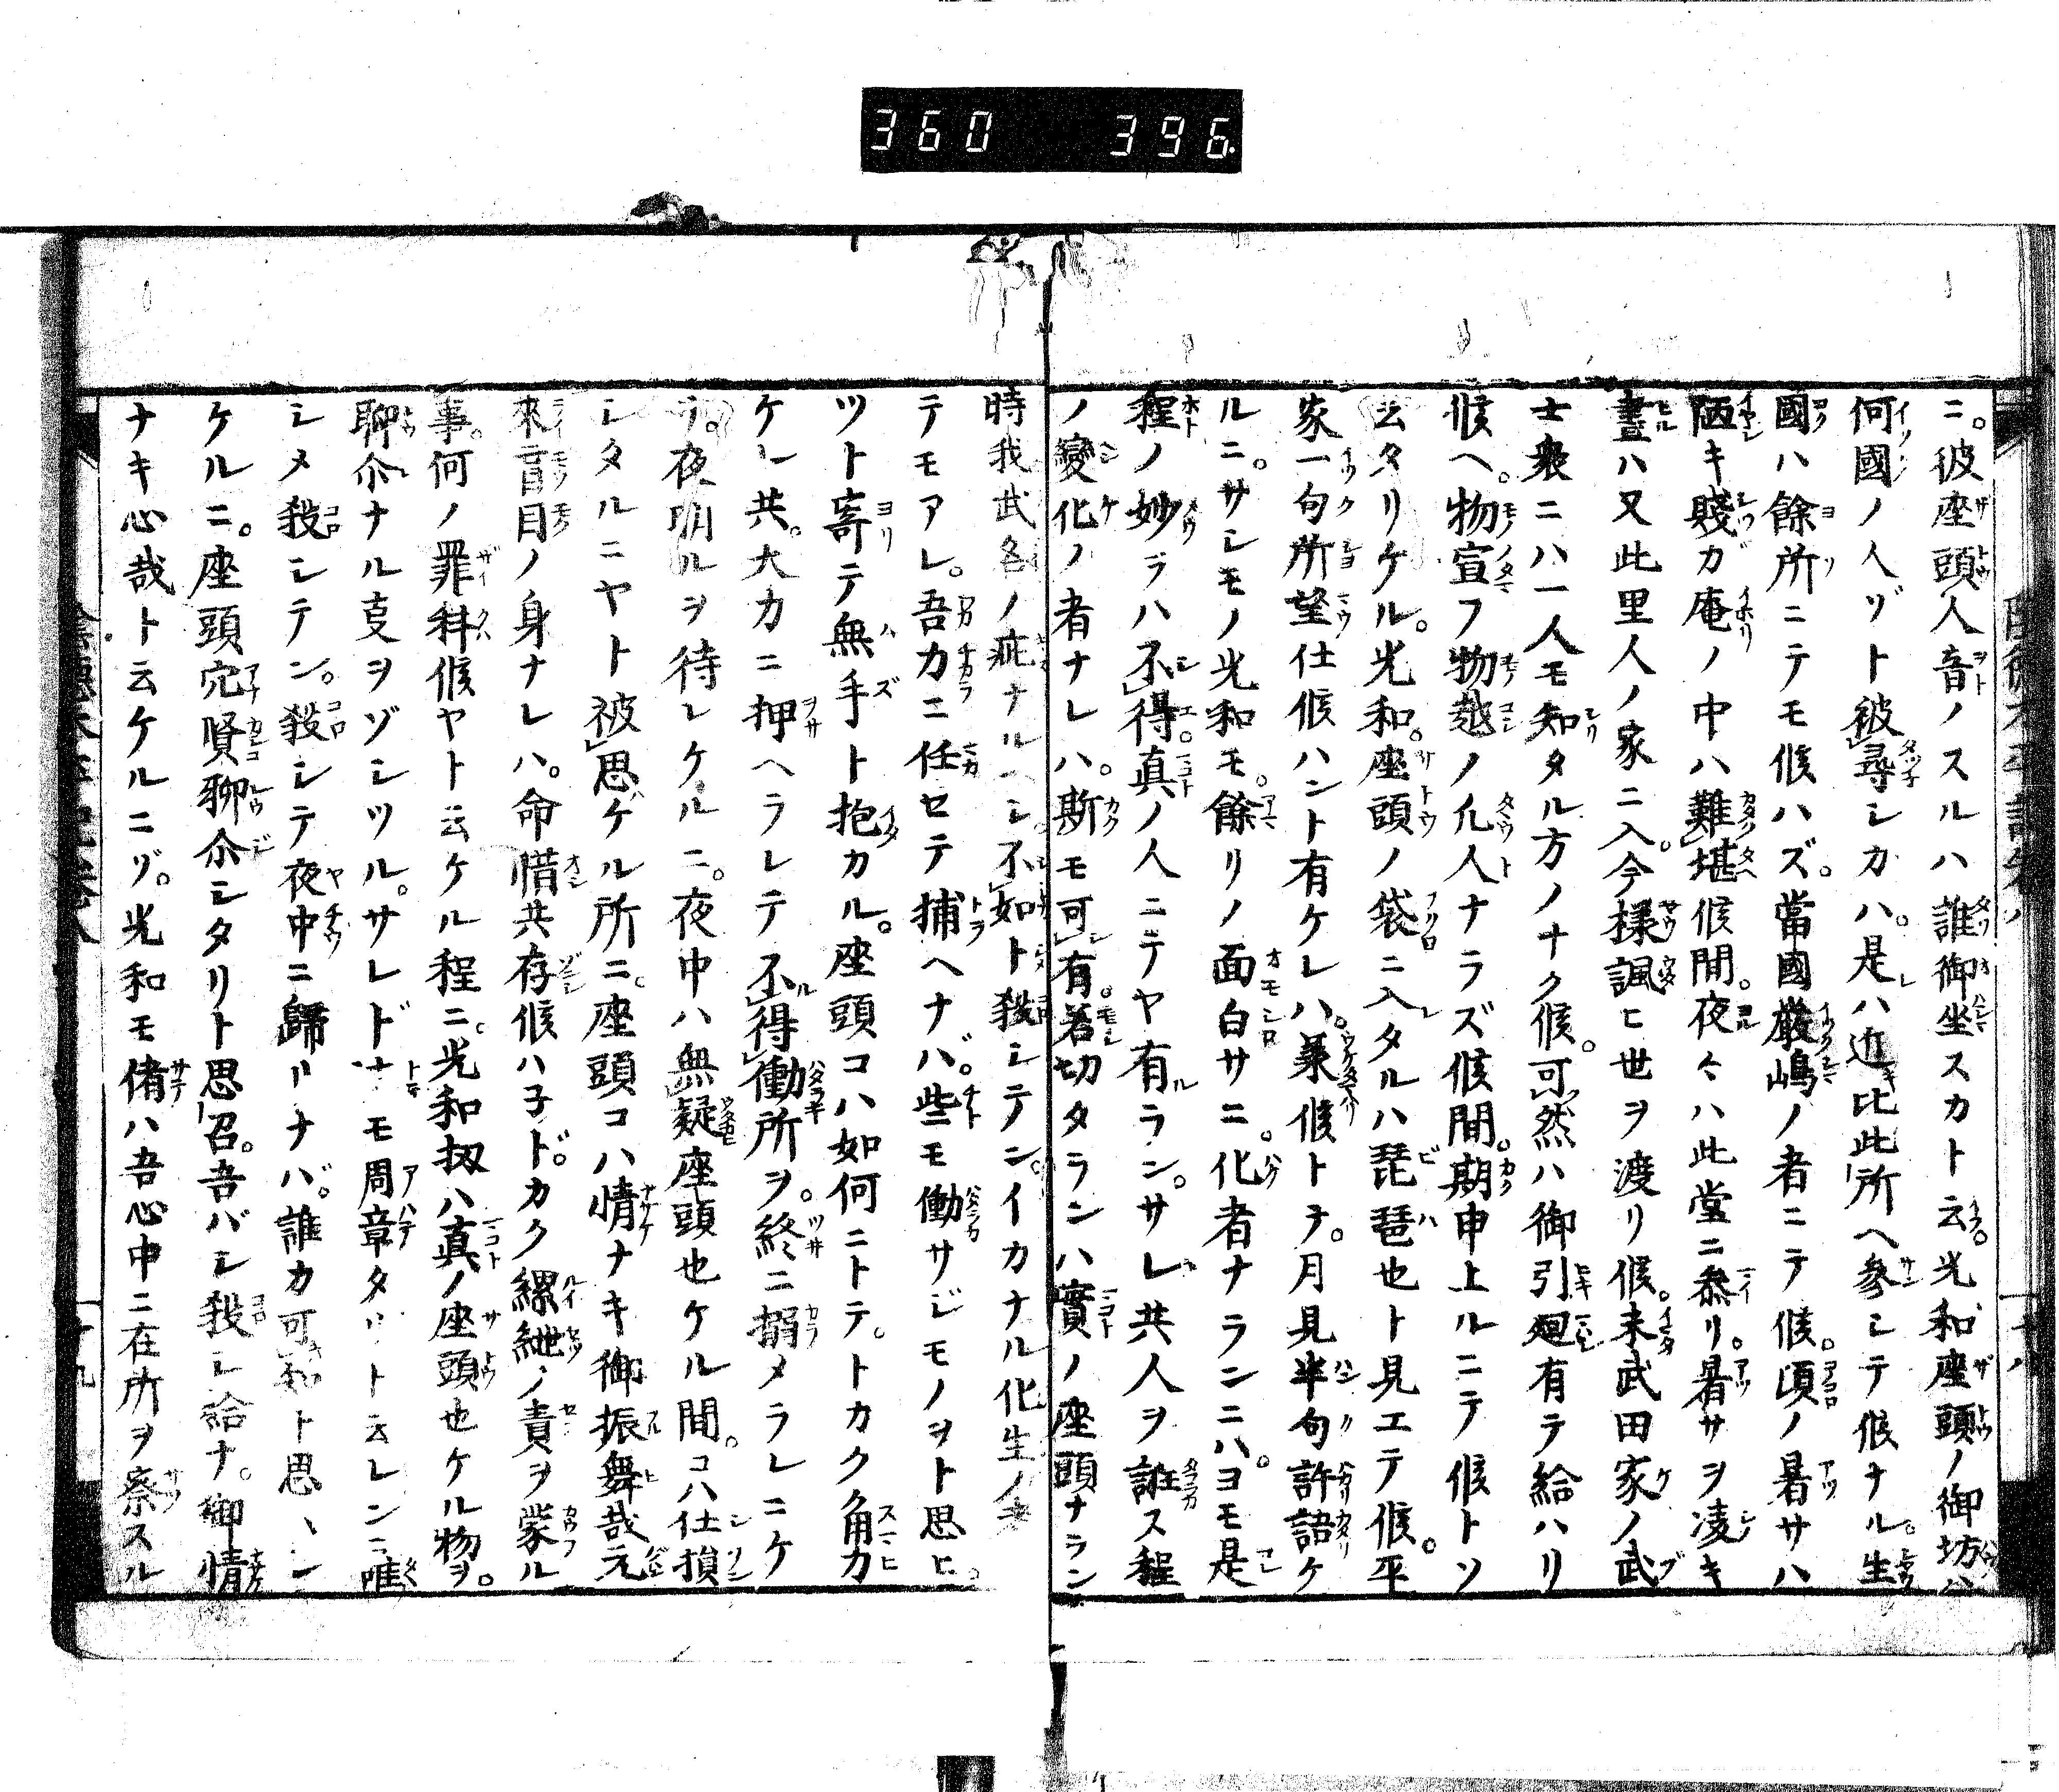 360 396
ニ。彼座頭人音ノスルハ誰御坐スカト云。光和座頭ノ御坊ハ
何國ノ人ゾト被尋シカハ。是ハ近比此所ヘ參シテ候ナル。生
國ハ餘所ニテモ候ハズ。當國嚴嶋ノ者ニテ候。頃ノ暑サハ
陋キ賤ガ庵ノ中ハ難堪候間。夜々ハ此堂ニ參リ。暑サヲ凌キ
晝ハ又此里人ノ家ニ入。今樣諷ヒ世ヲ渡リ候。未武田家ノ武
士衆ニハ一人モ知タル方ノナク候。可然ハ御引廻有テ給ハリ
候ヘ。物宣フ物越ノ凡人ナラズ候間。期申上ルニテ候トソ
云タリケル。光和。座頭ノ袋ニ入タルハ琵琶也ト見エテ候。平
家一句所望仕候ハント有ケレハ。承候トテ。月見半句許語ケ
ルニ。サシモノ光和モ。餘リノ面白サニ。化者ナランニハ。ヨモ是
程ノ妙ヲハ不得。真ノ人ニテヤ有ラン。サレ共人ヲ誑ス程
ノ變化ノ者ナレハ。斯モ可有。若切タランハ實ノ座頭ナラン
時我武名ノ疵ナルヘシ。不如ト殺シテン。イカナル化生ノ者
テモアレ。吾力ニ任セテ捕ヘナバ。些モ働サジモノヲト思ヒ。
ツト寄テ無手ト抱カル。座頭コハ如何ニトテ。トカク角力
ケレ共。大力ニ押ヘラレテ不得働所ヲ。終ニ搦メラレニケ
リ。夜明ルヲ待レケルニ。夜中ハ無疑座頭也ケル間。コハ仕損
シタルニヤト被思ケル所ニ。座頭コハ情ナキ御振舞哉元
來盲目ノ身ナレハ。命惜共存候ハ子ド。カク縲紲ノ責ヲ蒙ル
事。何ノ罪科候ヤト云ケル程ニ。光和扨ハ真ノ座頭也ケル物ヲ。
聊尓ナル叓ヲゾシツル。サレドナモ周章タリト云レンニ唯
シメ殺シテン。殺シテ夜中ニ歸リナバ。誰カ可知ト思ヽシ
ケルニ。座頭穴賢聊尓シタリト思召。吾バシ殺シ給ナ。御情
ナキ心哉ト云ケルニゾ。光和モ偖ハ吾心中ニ在所ヲ察スル